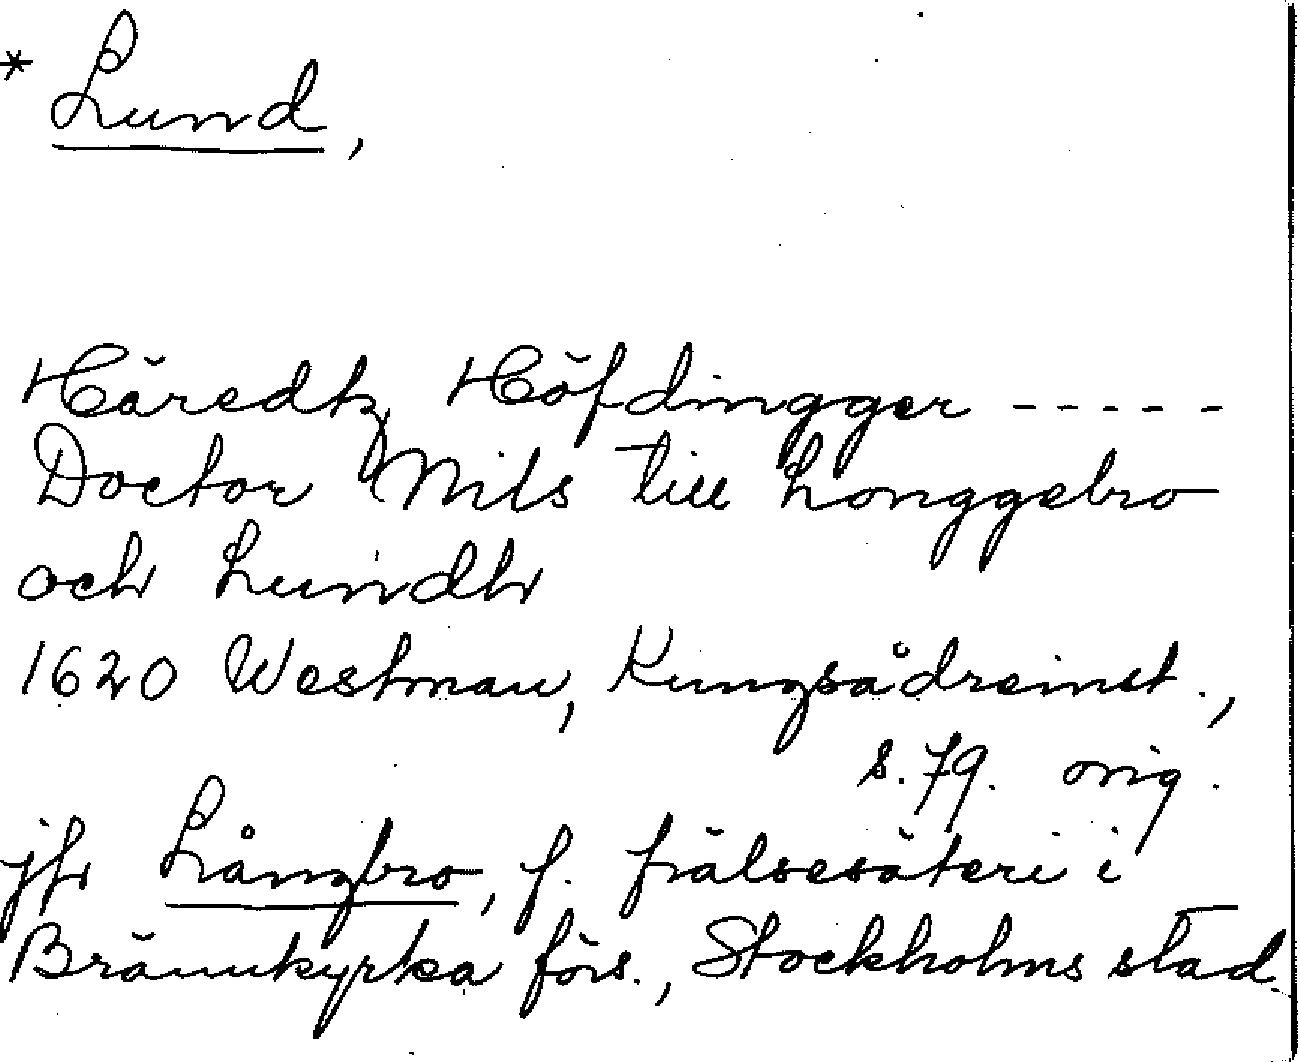 * Lund,
Häredtz Höfdingger -----
Doctor Nils till Longgebro
och Lundh
1620 Westman, Kungsådreinst.,
s. 79. orig.
jfr Långbro, f. frälsesäteri i
Brännkyrka förs., Stockholms stad.